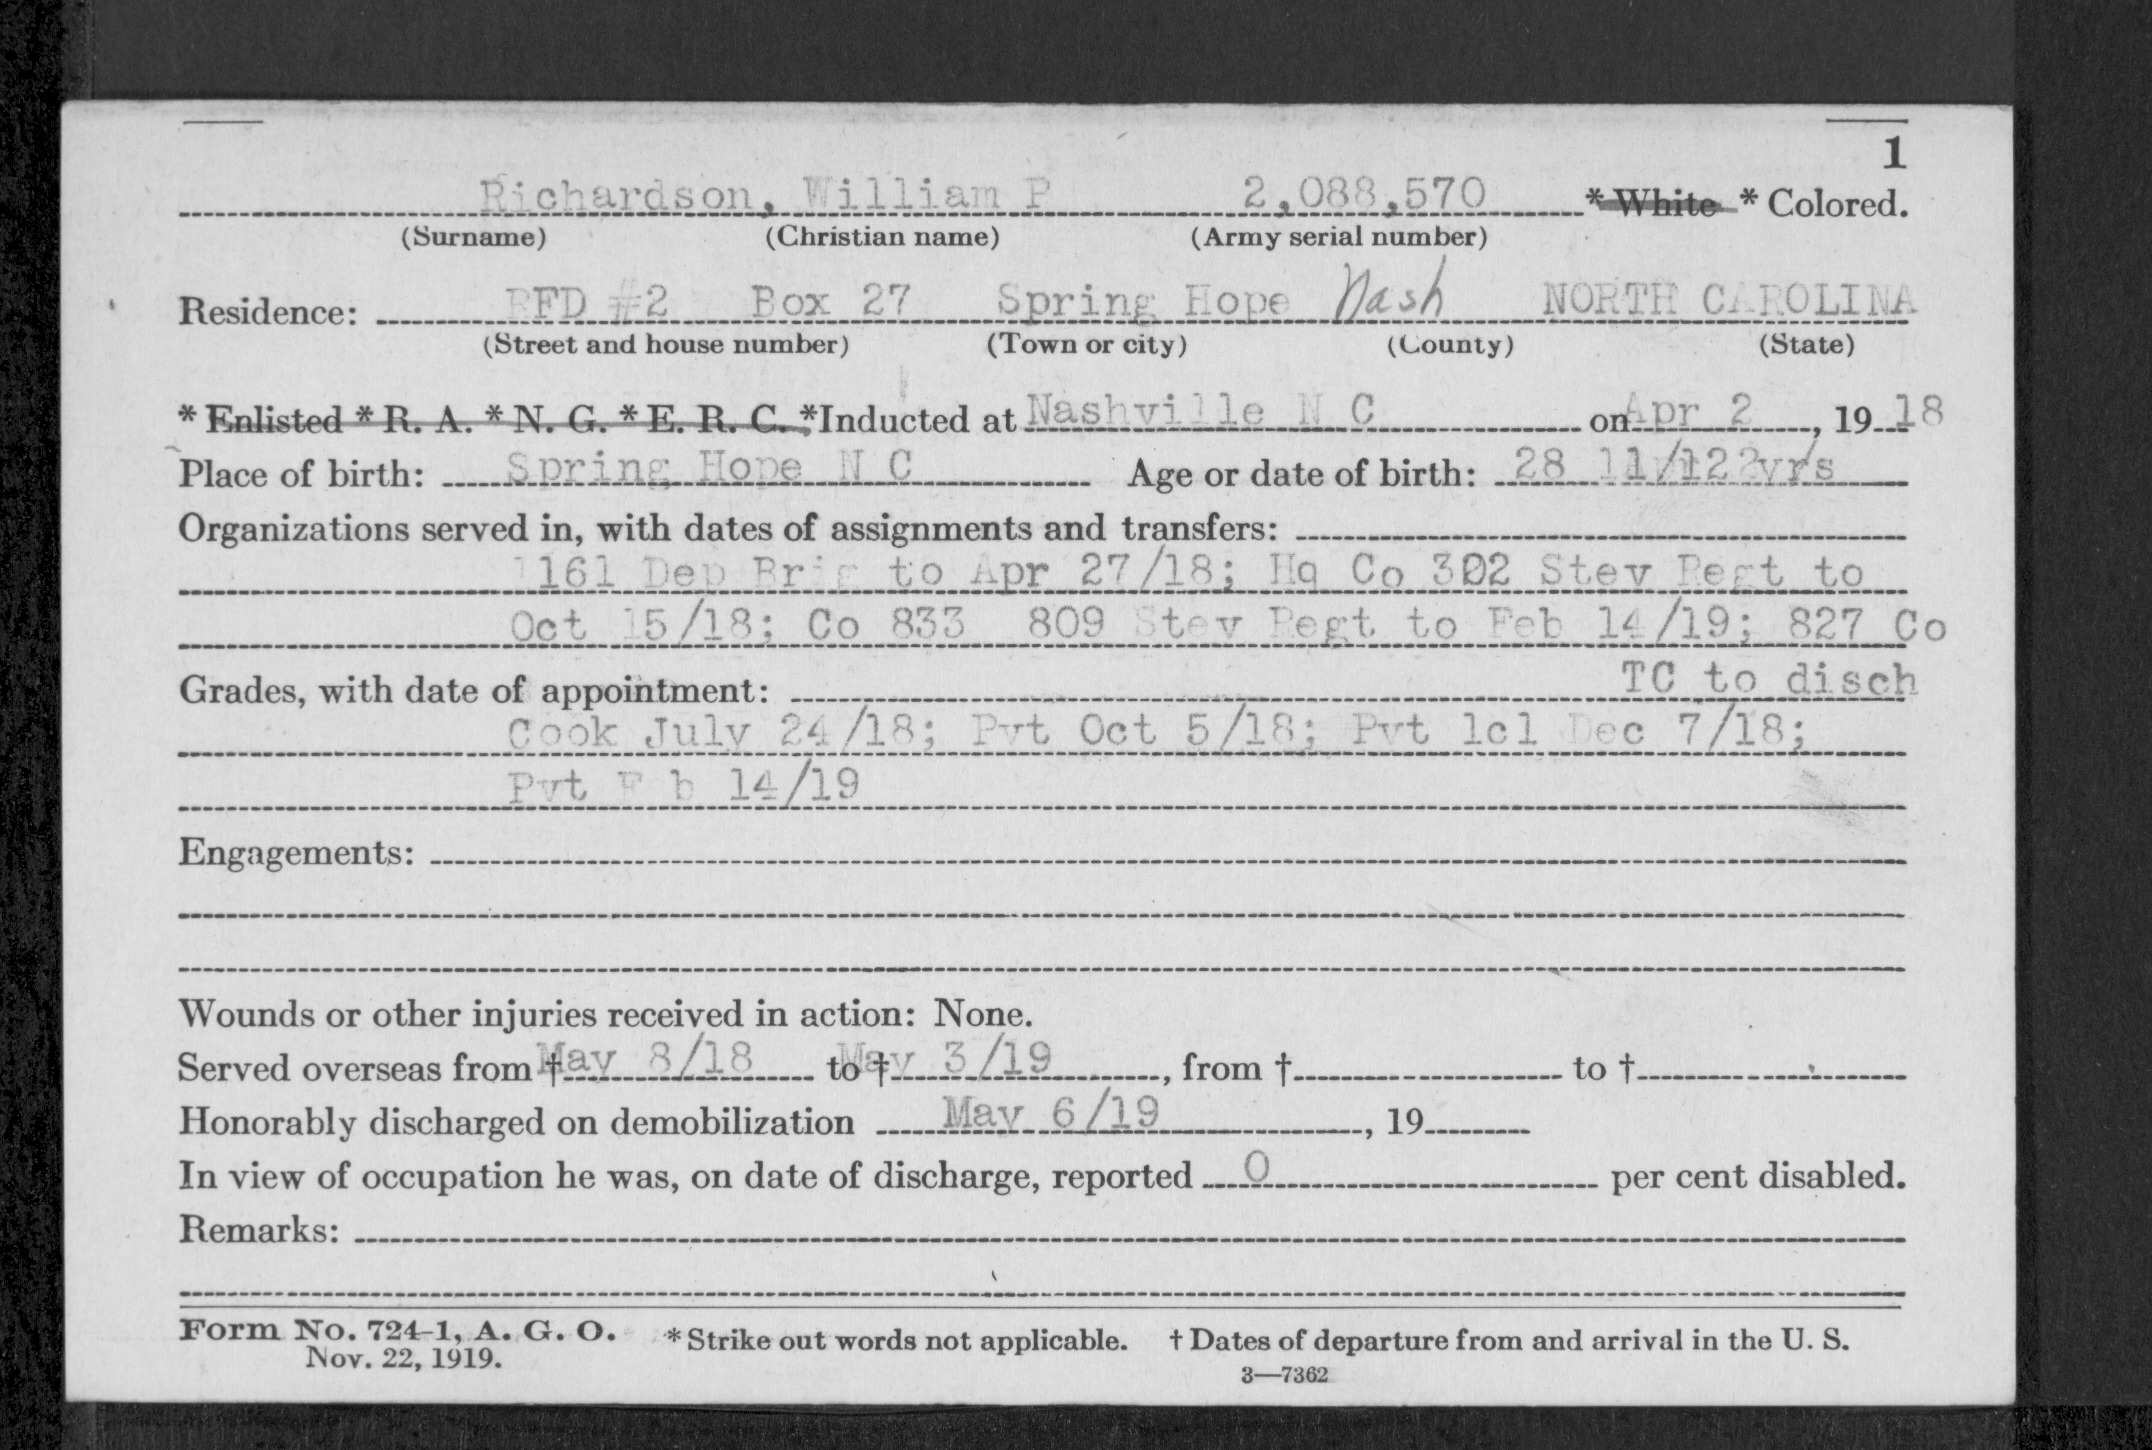 1
Richardson, William P 2,088,570 * White * Colored.
(Surname) (Christian name) (Army serial number)
Residence: RFD #2 Box 27 Spring Hope Nash NORTH CAROLINA
(Street and house number) (Town or city) (County) (State)
* Enlisted * R. A. * N. G. * E. R. C. *Inducted at Nashville N C on Apr 2, 19 18
Place of birth: Spring Hope N C Age or date of birth: 28 11/12 yrs
Organizations served in, with dates of assignments and transfers:
161 Dep Brig to Apr 27/18; Hq Co 302 Stev Regt to
Oct 15/18; Co 833 809 Stev Regt to Feb 14/19; 827 Co
TC to disch
Grades, with date of appointment:
Cook July 24/18; Pvt Oct 5/18; Pvt 1cl Dec 7/18;
Pvt F b 14/19
Engagements:
Wounds or other injuries received in action: None.
Served overseas from † May 8/18 to † May 3/19, from † to †
Honorably discharged on demobilization May 6/19, 19
In view of occupation he was, on date of discharge, reported 0 per cent disabled.
Remarks:
Form No. 724-1, A. G. O. * Strike out words not applicable. † Dates of departure from and arrival in the U. S.
Nov. 22, 1919.
3—7362